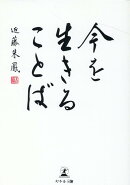 今を
生きる
ことば
近藤朱鳳
幻冬舎